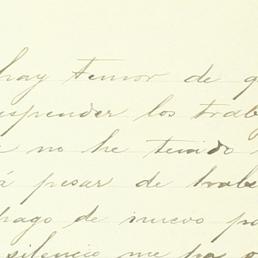 hay temor de q
spender los trab
no he tenido
á pesar de habe
hago de nuevo po
silencio me ha o